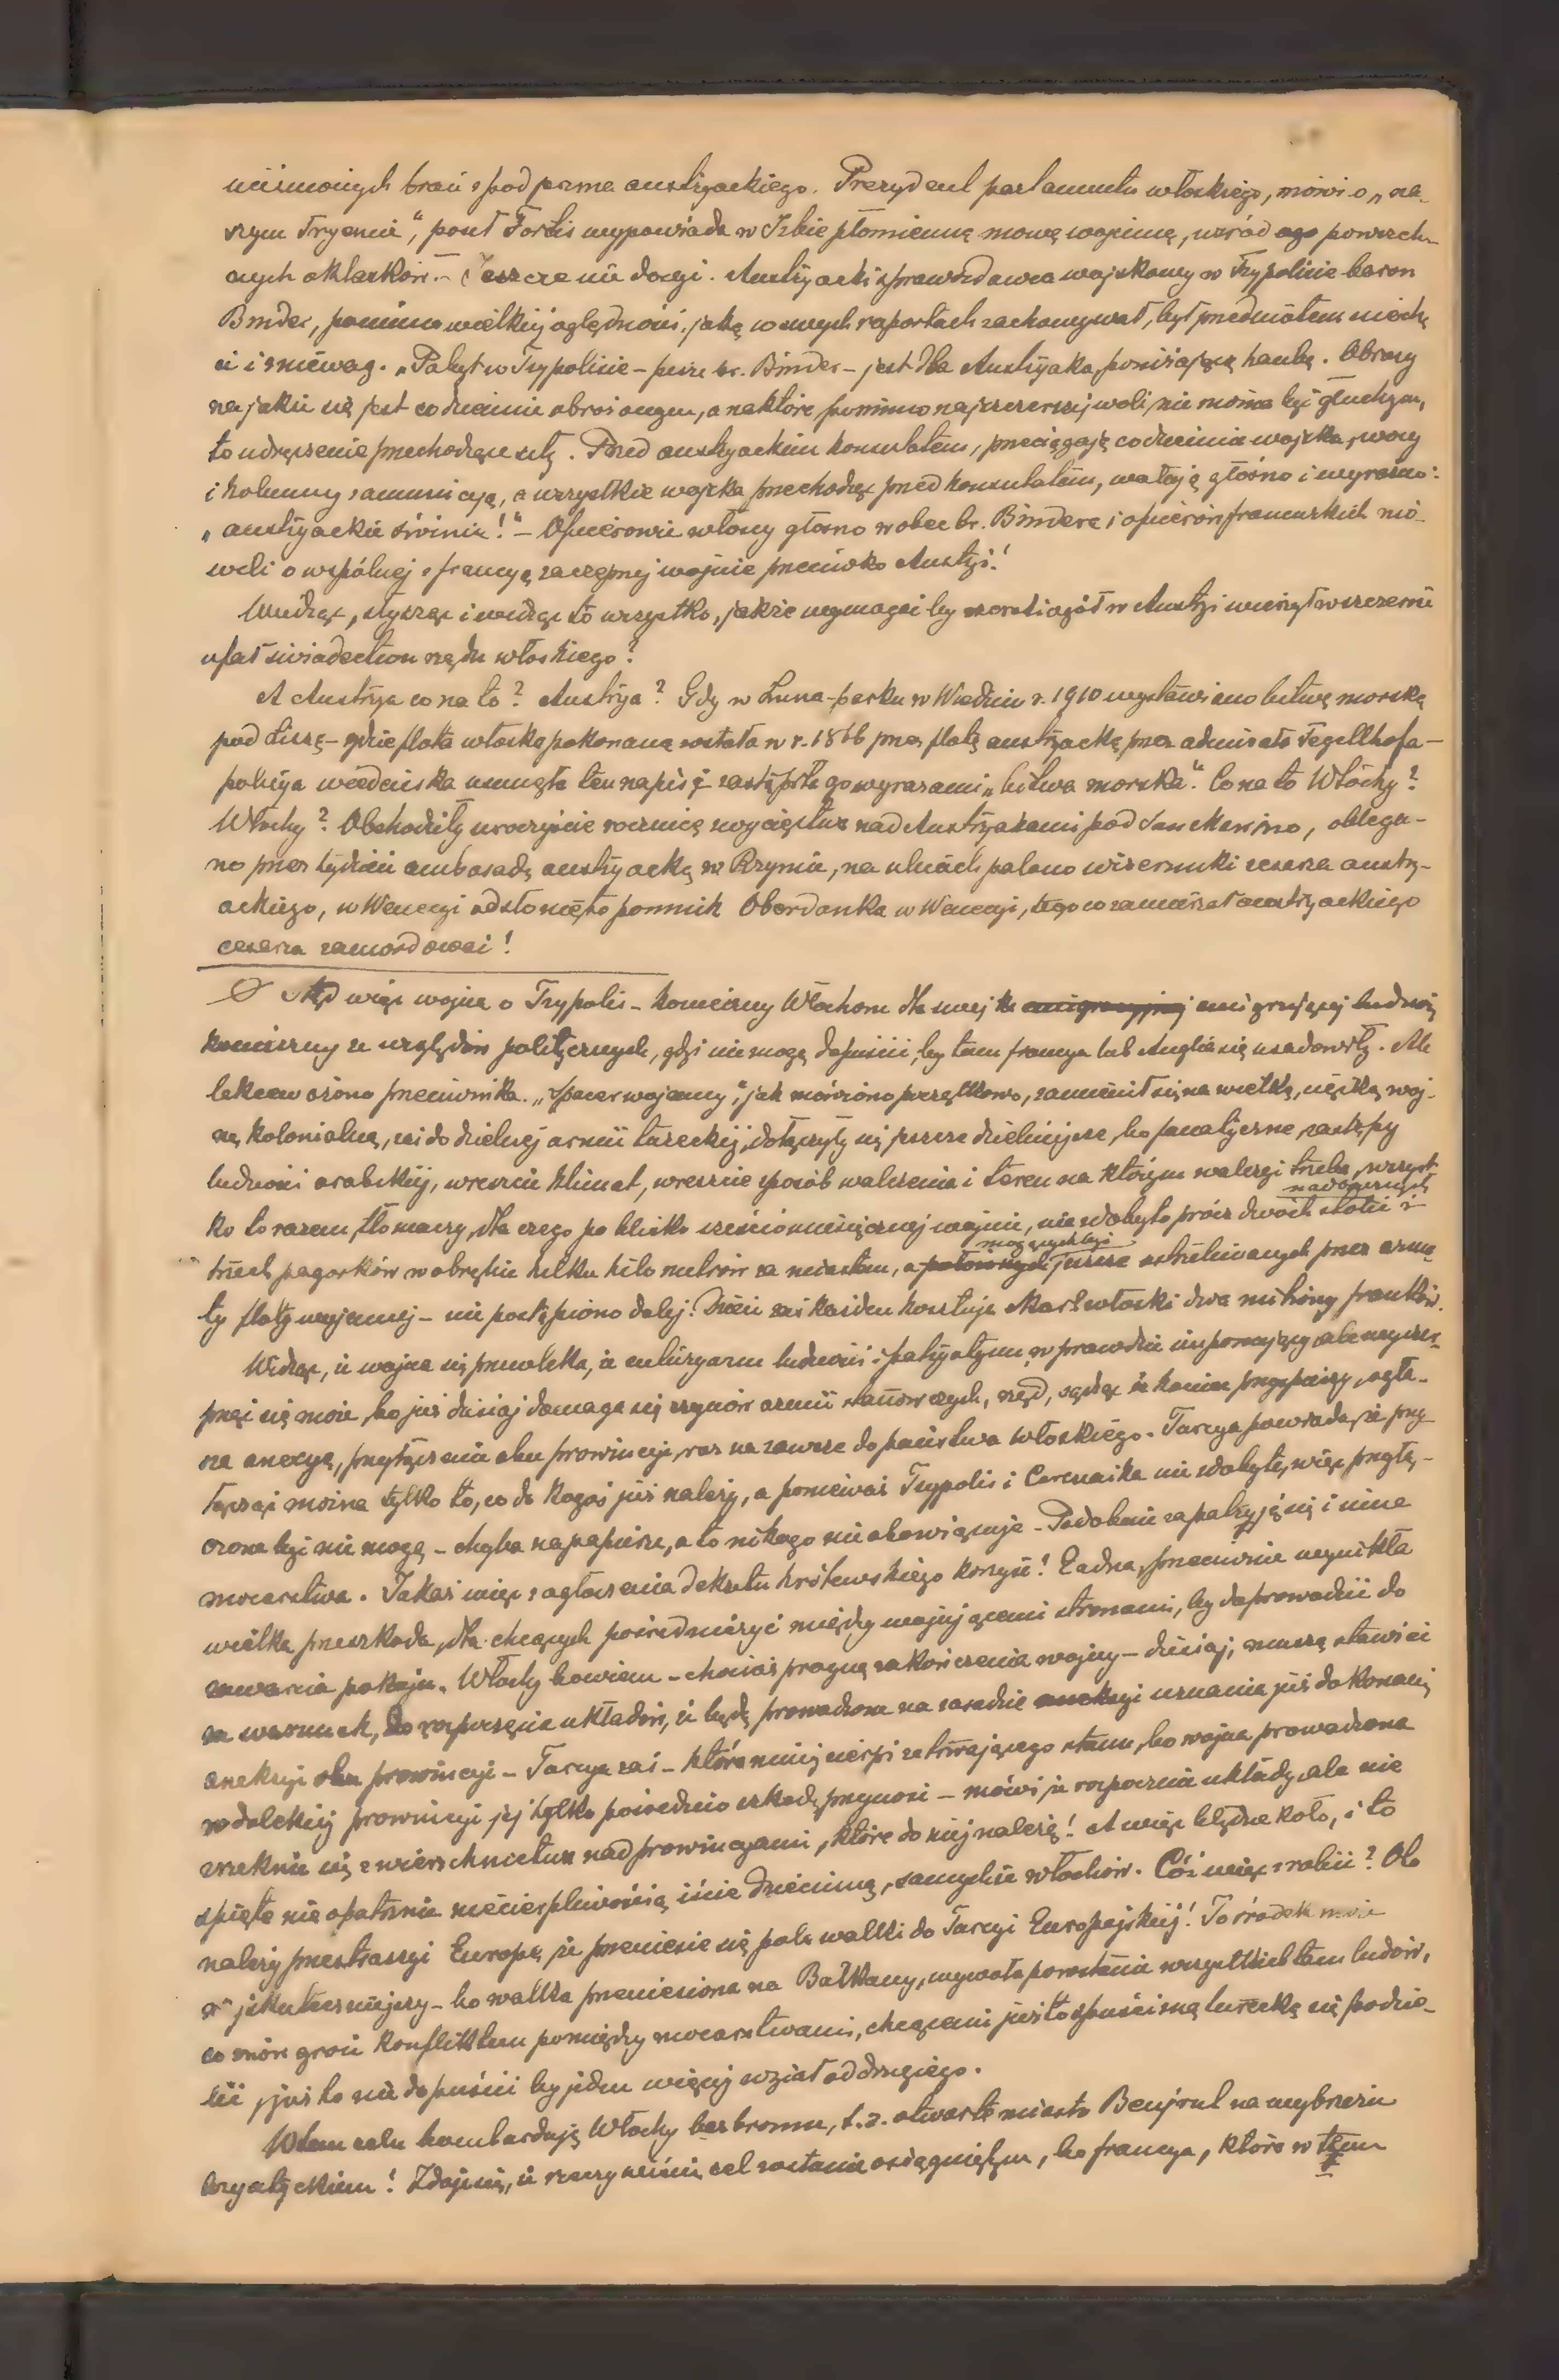 uciśnionych braci z pod jarzma austryackiego. Prezydent parlamentu włoskiego, mówi o „na-
szym Tryencie“, poseł Fortis wypowiada w Izbie płomienną mowę wojenną, wśród ogo powszech-
nych oklasków.– Jeszcze nie dosyć. Austryacki sprawozdawca wojskowy w Trypolisie baron
Binder, pomimo wielkiej oględności, jaką w swych raportach zachowywał, był przedmiotem niechę
ci i zniewag. „Pobyt w Trypolisie – pisze br. Binder – jest dla Austryaka poniżającą hańbą. Obrazy
na jakie się jest codziennie obrażonym, a na które pomimo najszczerszej woli, nie można być głuchym,
to udręczenie przechodzące siły. Przed austryackim konsulatem, przeciągają codziennie wojska, wozy
i kolumny z amunicyą, a wszystkie wojska przechodząc przed konsulatem, wołają głośno i wyraźnie:
„austryackie świnie!“ – Oficerowie włoscy głośno wobec br. Bindera i oficerów francuskich mó-
wili o wspólnej z francyą zaczepnej wojnie przeciwko Austryi!
Wiedząc, słysząc i widząc to wszystko, jakże wymagać by szerszi ogół w Austryi wierzył w szczerość
ufał świadectwom rządu włoskiego?
A Austrya co na to? Austrya? Gdy w Luna-parku w Wiedniu r. 1910 wystawiano bitwę morską
pod Lissą – gdzie flota włoska pokonaną została w r. 1866 przez flotę austryacką przez admirała Tegetthofa –
policya wiedeńska usunęła ten napis i zastąpiła go wyrazami „bitwa morska“. Co na to Włochy?
Włochy? Obchodziły uroczyście rocznicę zwycięstwa nad Austryakami pod San Marino, oblega-
no przez tydzień ambasadę austryacką w Rzymie, na ulicach palano wizerunki cesarza austry-
ackiego, w Wenecyi odsłonięto pomnik Oberdanka w Wenecyi, tego co zamierzał austryackiego
cesarza zamordować!
Stąd więc wojna o Trypolis – konieczny Włochom dla swej emigracyjnej emigrującej ludności,
konieczny ze względów politycznych, gdyż nie mogą dopuścić, by tam francya lub Anglia się usadowiły. Ale
lekceważono przeciwnika. „Spacer wojenny“, jak mówiono początkowo, zamienił się na wielką, ciężką woj-
nę kolonialną, zaś do dzielnej armii tureckiej, dołączyły się jeszcze dzielniejsze, bo fanatyczne, zastępy
ludności arabskiej, wreszcie klimat, wreszcie sposób walczenia i teren na którym walczyć trzeba, wszyst-
ko to razem, tłomaczy, dla czego po blisko sześciomiesięcznej wojnie, nie zdobyto prócz dwóch stolic i
nadbrzeżnych
trzech pagórków w obrębie kilku kilometrów za miastem, a położonych jeszcze ostrzeliwanych przez arma-
mogących być
ty floty wojennej – nie postąpiono dalej! Dzień zaś każden kosztuje skarb włoski dwa miliony franków.
Widząc, iż wojna się przewleka, iż entuzyazm ludności i patryotyzm wprawdzie imponujący ale wyczer-
pnąć się może, bo już dzisiaj domaga się czynów armii stanowczych, rząd, sądząc że koniec przyspieszy, ogła-
sza anexyą, przyłączenia obu prowincyj, raz na zawsze do państwa włoskiego. Turcya powiada, że przy-
łączać można tylko to, co do kogoś już należy, a ponieważ Trypolis i Cerenaika nie zdobyte, więc przyłą-
czone być nie mogą – chyba na papierze, a to nikogo nie obowiązuje – Podobnie zapatrują się i inne
mocarstwa. Jakaś więc z ogłoszenia dekretu królewskiego korzyść! Żadna, przeciwnie wynikła
wielka przeszkoda, dla chcących pośredniczyć między wojującemi stronami, by doprowadzić do
zawarcia pokoju. Włochy bowiem – chociaż pragną zakończenia wojny – dzisiaj, muszą stawiać
za warunek, do rozpoczęcia układów, iż będą prowadzone na zasadzie aneksyi uznania już dokonanej
aneksyi obu prowincyi – Turcya zaś – która mniej cierpi ze trwającego stanu, bo wojna prowadzona
w dalekiej prowincyi jej tylko pośrednio szkodę przynosi – mówi, że rozpocznie układy, ale nie
zrzeknie się zwierzchnictwa nad prowincyami, które do niej należą! A więc błędne koło, i to
spięte nieopatrznie niecierpliwością iście dziecinną, samychże włochów. Cóż więc zrobić? Oto
należy przestraszyć Europę, że przeniesie się pole walki do Turcyi Europejskiej! To środek może
i jskuteczniejszy – bo walka przeniesiona na Bałkany, wywoła powstanie wszystkich tam ludów,
co znów grozi konfliktem pomiędzy mocarstwami, chcącemi już to spuścizną turecką się podzie-
lić, już to nie dopuścić by jeden więcej wziął od drugiego.
W tem celu bombardują Włochy bezbronne, t.z. otwarte miasto Bejrut na wybrzeżu
azyatyckiem! Zdaje się, iż rzeczywiście cel zostanie osiągniętym, bo francya, która w tym